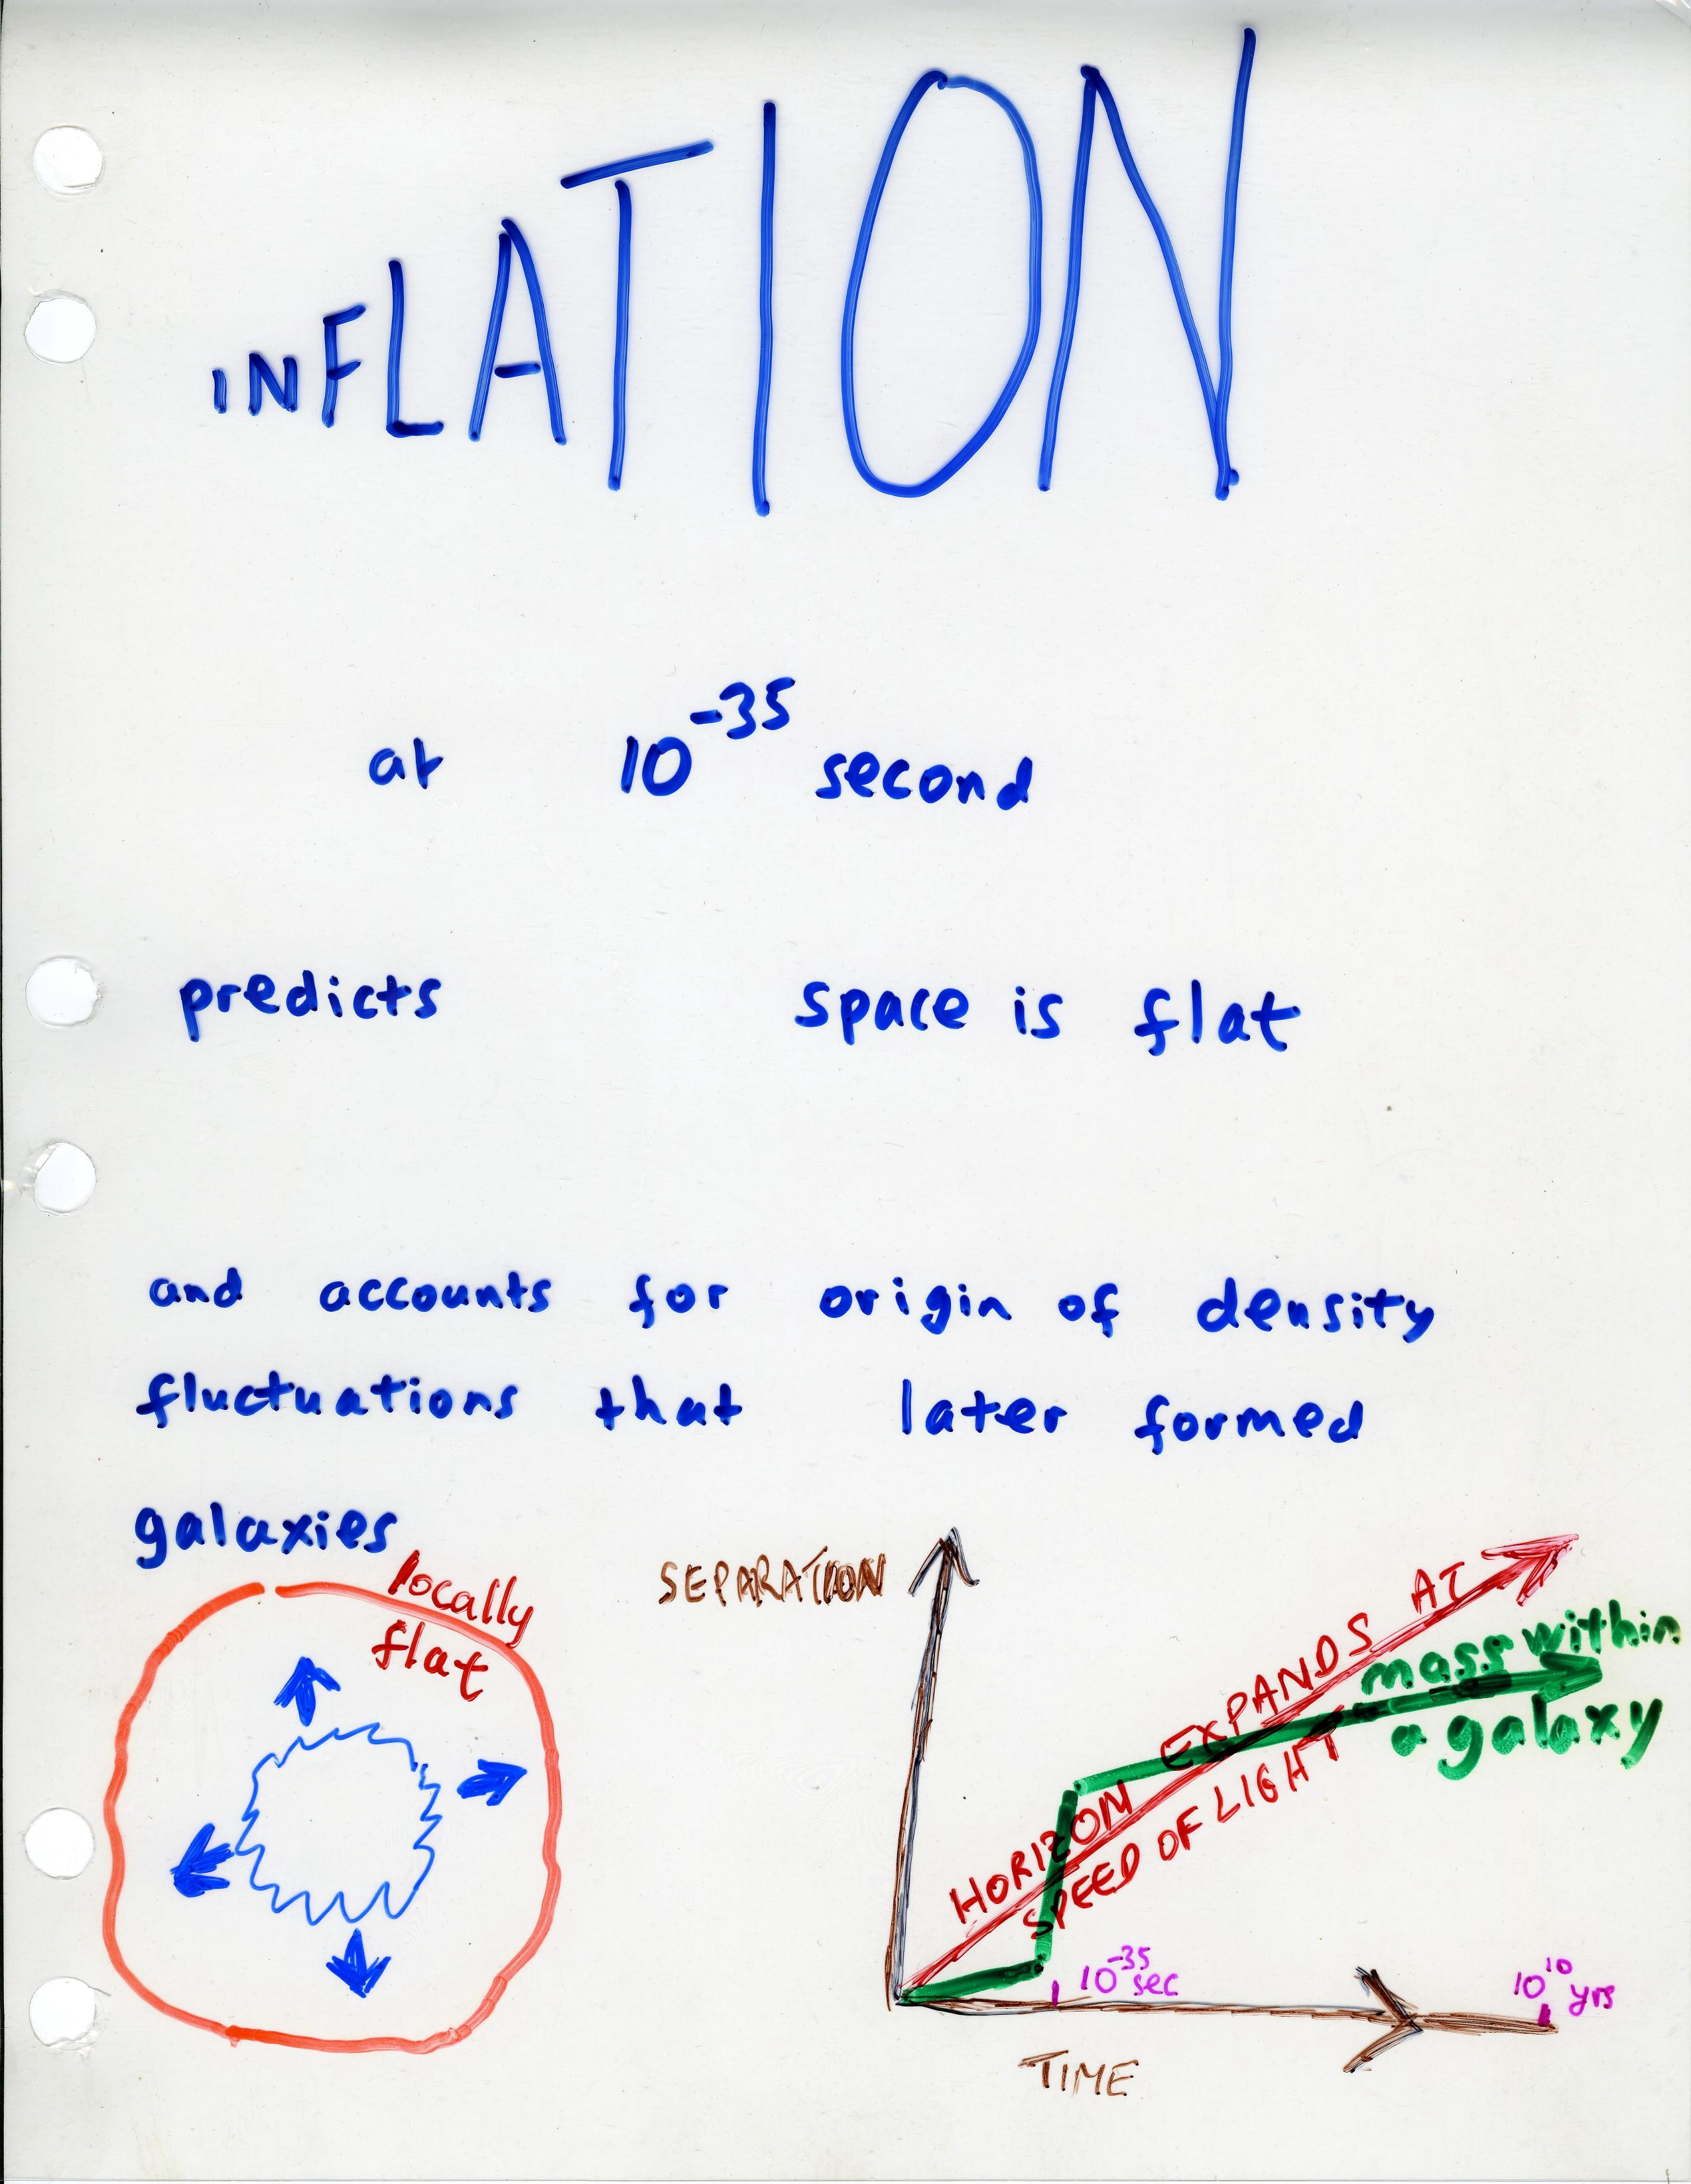 INFLATION
at 10^-35 second
predicts space is flat
and accounts for origin of density
fluctuations that later formed
galaxies
locally
flat
SEPARATION
HORIZON EXPANDS AT
SPEED OF LIGHT
mass within
a galaxy
10^-35 sec
10^10 yrs
TIME